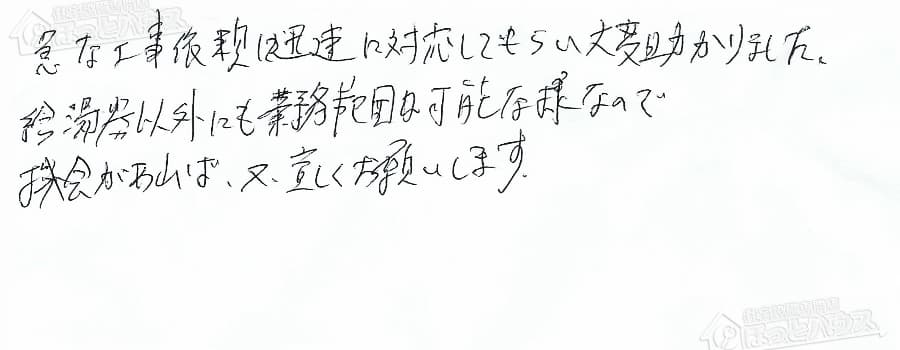 急な工事依頼に迅速に対応してもらい大変助かりました。
給湯器以外にも業務範囲は可能な様なので
機会があれば、又、宜しくお願いします。
住宅設備専門店
ほっとハウス
住宅設備専門店
ほっとハウス